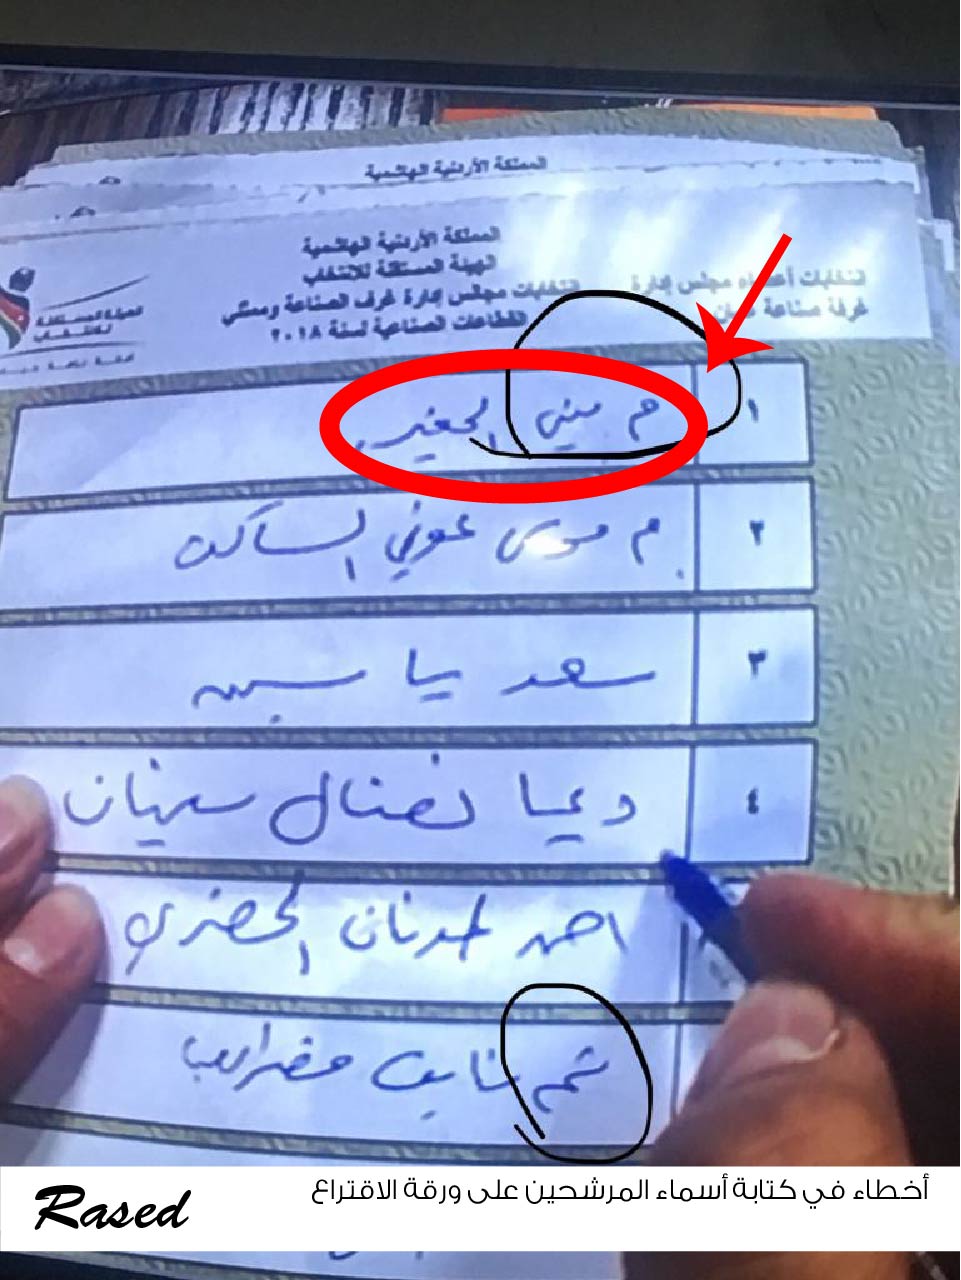 المملكة الأردنية الهاشمية
المملكة الأردنية الهاشمية
الهيئة المستقلة للانتخاب
انتخابات أعضاء مجلس إدارة
انتخابات مجلس إدارة غرف الصناعة وممثلي
غرفة صناعة عمان
القطاعات الصناعية لسنة ٢٠١٨
الهيئة المستقلة
للانتخاب
١ م ميني الجغبير
٢ م موسى عوني الساكت
٣ سعد ياسين
٤ ديما نضال سختيان
احمد عدنان الخضري
تميم
أخطاء في كتابة أسماء المرشحين على ورقة الاقتراع
Rased